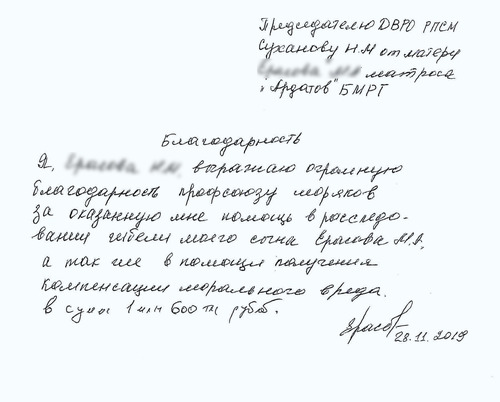 Председателю ДВРО РПСМ
Суханову Н.М от матери
матроса
"Ардатов" БМРТ
Благодарность
Я, выражаю огромную
благодарность профсоюзу моряков
за оказанную мне помощь в расследо-
вании гибели моего сына Ерасова М.А,
а так же в помощи получения
компенсации морального вреда.
в сумме 1 млн 600 т рублей.
28.11.2019